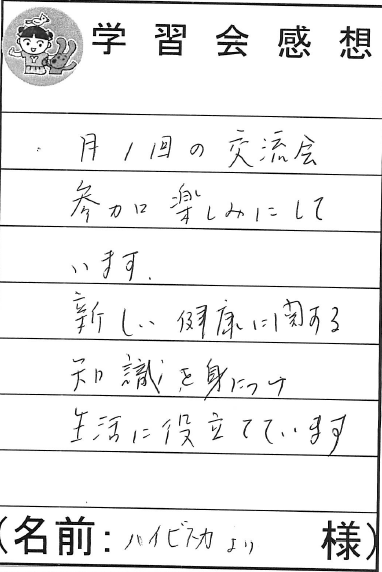 学習会感想
月1回の交流会
参加楽しみにして
います.
新しい健康に関する
知識を身につけ
生活に役立てています
(名前: ハイビスカより 様)